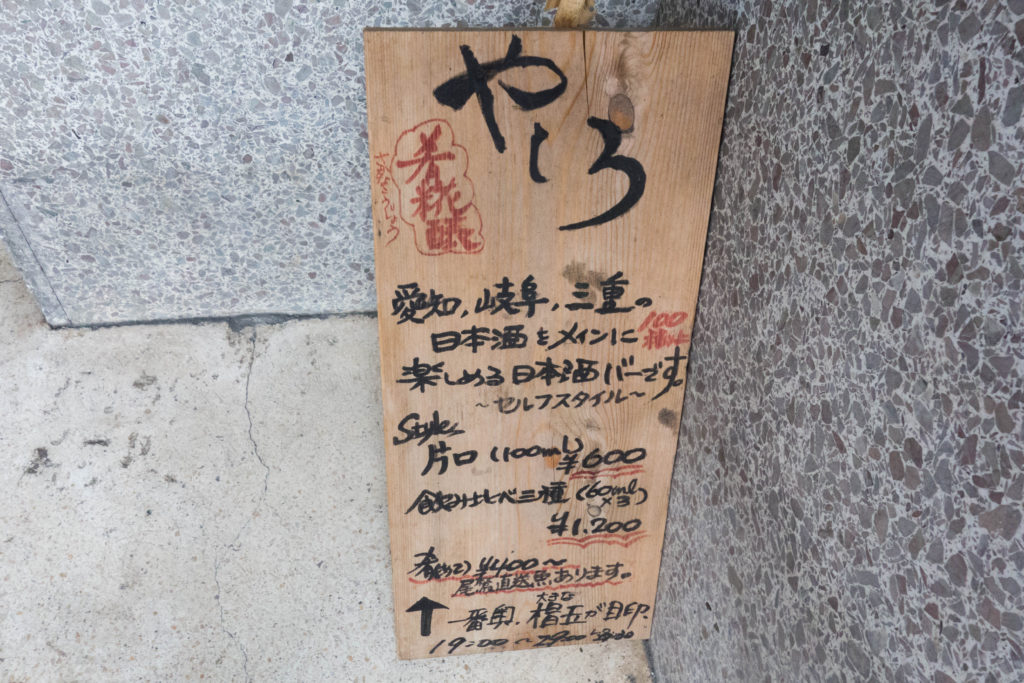 やしろ
愛知,岐阜,三重の
日本酒をメインに
100
種以上
楽しめる日本酒バーです。
~セルフスタイル~
Style
片口(100ml)
¥600
飲み比べ三種(60ml
×3)
¥1,200
肴(あて)¥400~
尾鷲直送魚あります。
大きな
一番奥,提灯が目印.
19:00~